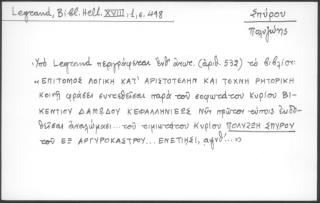 Legrand, Bibl. Hell. XVIII, 1, σ. 498
Σπύρου
Πολυζώης
Ὑπὸ Legrand περιγράφεται (ἀριθ. 532) τὸ βιβλίον:
«ΕΠΙΤΟΜΟΣ ΛΟΓΙΚΗ ΚΑΤ' ΑΡΙΣΤΟΤΕΛΗΝ ΚΑΙ ΤΕΧΝΗ ΡΗΤΟΡΙΚΗ
Κοινῇ φράσει συντεθεῖσαι παρὰ τοῦ σοφωτάτου Κυρίου ΒΙ-
ΚΕΝΤΙΟΥ ΔΑΜΟΔΟΥ ΚΕΦΑΛΛΗΝΙΕΩΣ Νῦν πρῶτον τύποις ἐκδο-
θεῖσαι ἀναλώμασι... τοῦ τιμιωτάτου Κυρίου ΠΟΛΥΖΩΗ ΣΠΥΡΟΥ
τοῦ ΕΞ ΑΡΓΥΡΟΚΑΣΤΡΟΥ... ΕΝΕΤΙΗΣΙ, αψνθ'...»